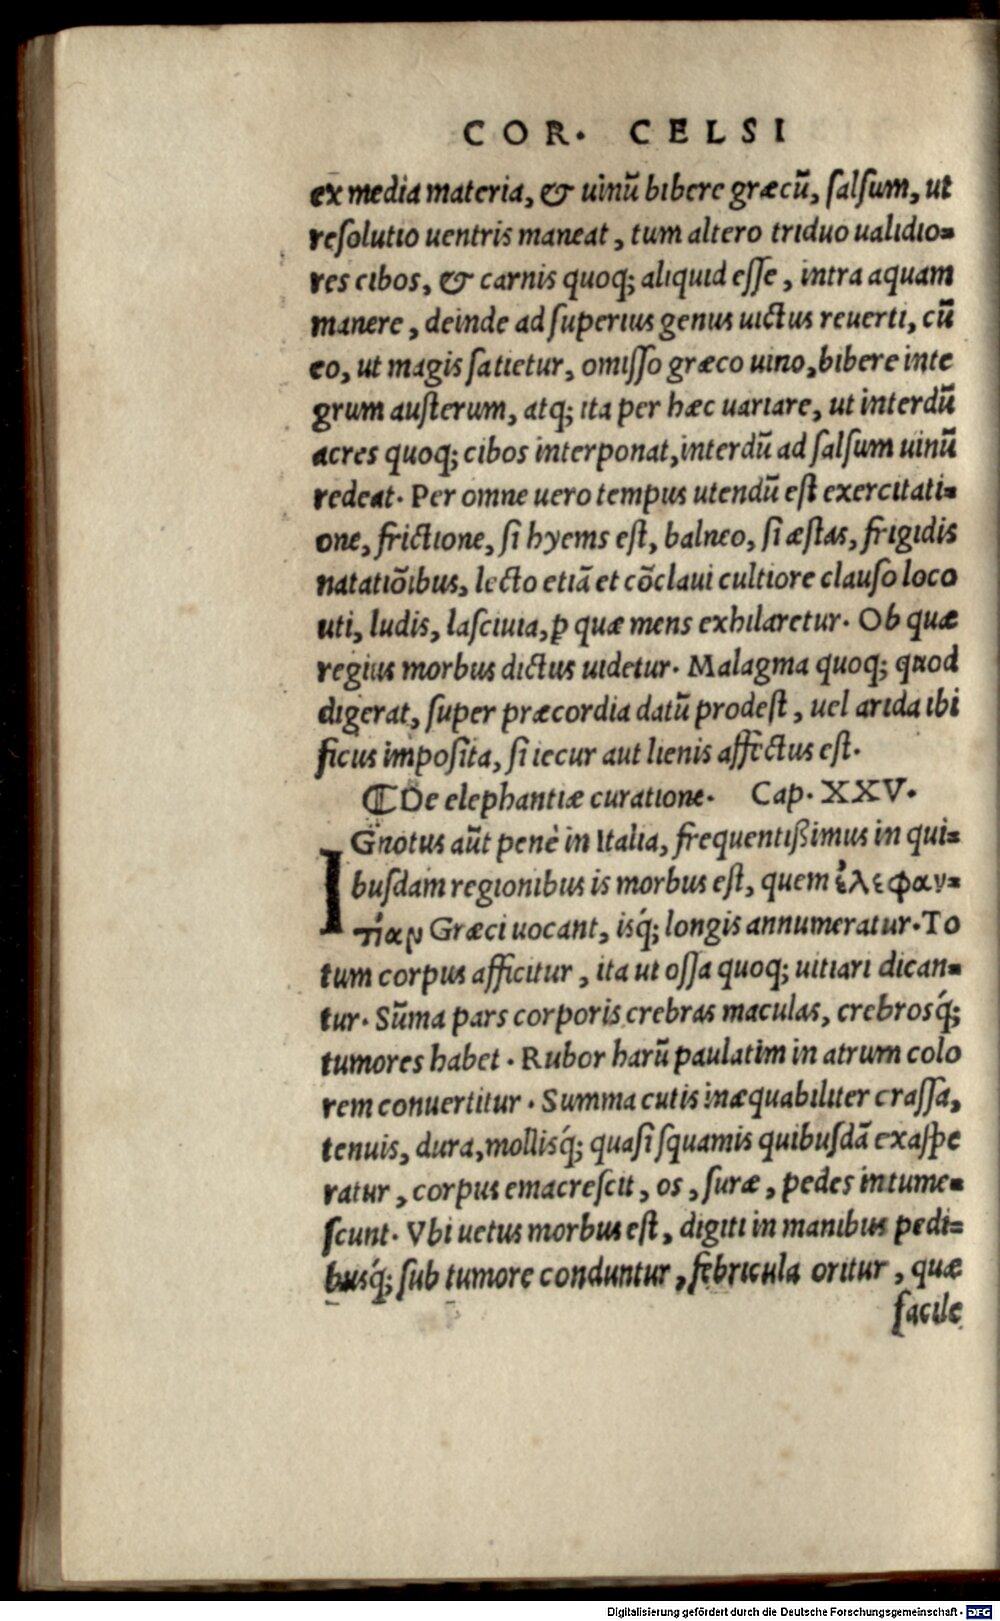 COR. CELSI
ex media materia, & uinū bibere græcū, salsum, ut
resolutio uentris maneat, tum altero triduo ualidio=
res cibos, & carnis quoq; aliquid esse, intra aquam
manere, deinde ad superius genus uictus reuerti, cū
eo, ut magis satietur, omisso græco uino, bibere inte
grum austerum, atq; ita per hæc uariare, ut interdū
acres quoq; cibos interponat, interdū ad salsum uinū
redeat. Per omne uero tempus utendū est exercitati=
one, frictione, si hyems est, balneo, si æstas, frigidis
natatiōibus, lecto etiā et cōclaui cultiore clauso loco
uti, ludis, lasciuia, ꝑ quæ mens exhilaretur. Ob quæ
regius morbus dictus uidetur. Malagma quoq; quod
digerat, super præcordia datū prodest, uel arida ibi
ficus imposita, si iecur aut lienis affectus est.
⁋ De elephantiæ curatione. Cap. XXV.
IGnotus aūt penè in Italia, frequentißimus in qui=
busdam regionibus is morbus est, quem ἐλεφαν=
τίαν Græci uocant, isq́; longis annumeratur. To
tum corpus afficitur, ita ut ossa quoq; uitiari dican=
tur. Sūma pars corporis crebras maculas, crebrosq́;
tumores habet. Rubor harū paulatim in atrum colo
rem conuertitur. Summa cutis inæquabiliter crassa,
tenuis, dura, mollisq́; quasi squamis quibusdā exaspe
ratur, corpus emacrescit, os, suræ, pedes intume=
scunt. Vbi uetus morbus est, digiti in manibus pedi=
busq́; sub tumore conduntur, febricula oritur, quæ
facile
Digitalisierung gefördert durch die Deutsche Forschungsgemeinschaft - DFG